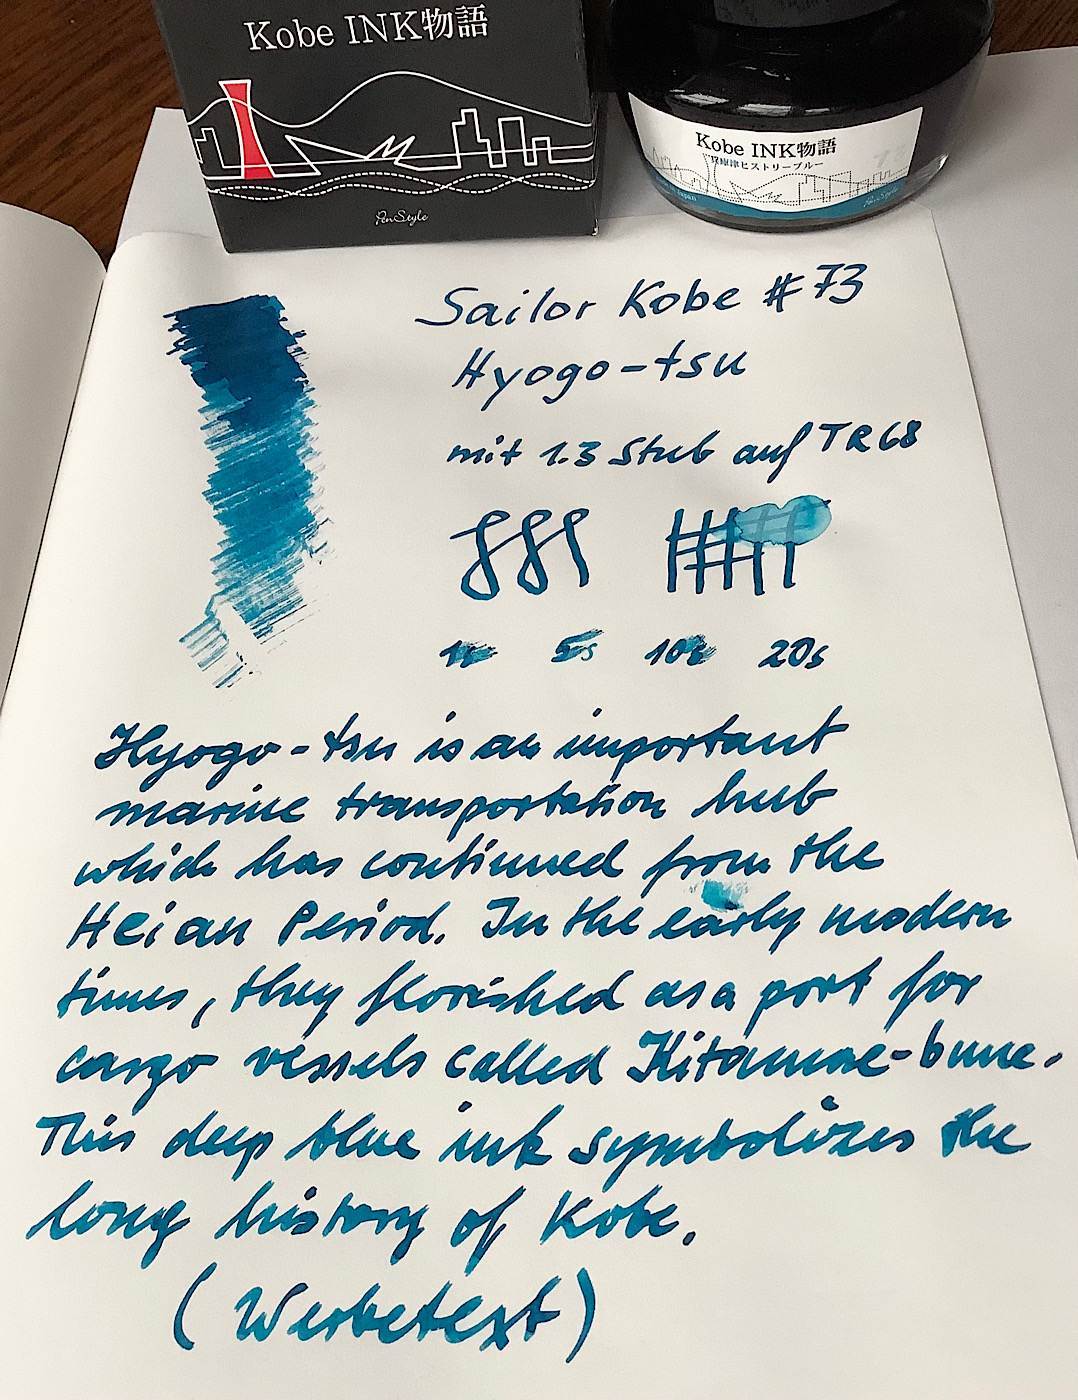 Kobe INK物語
Pen Style
Kobe INK物語
兵庫津ヒストリーブルー
73
Japan
Pen Style
Sailor Kobe #73
Hyogo-tsu
mit 1.3 Stub auf TR68
1s 5s 10s 20s
Hyogo-tsu is an important
marine transportation hub
which has continued from the
Heian Period. In the early modern
times, they florished as a port for
cargo vessels called Kitamae-bune.
This deep blue ink symbolizes the
long history of Kobe.
(Werbetext)